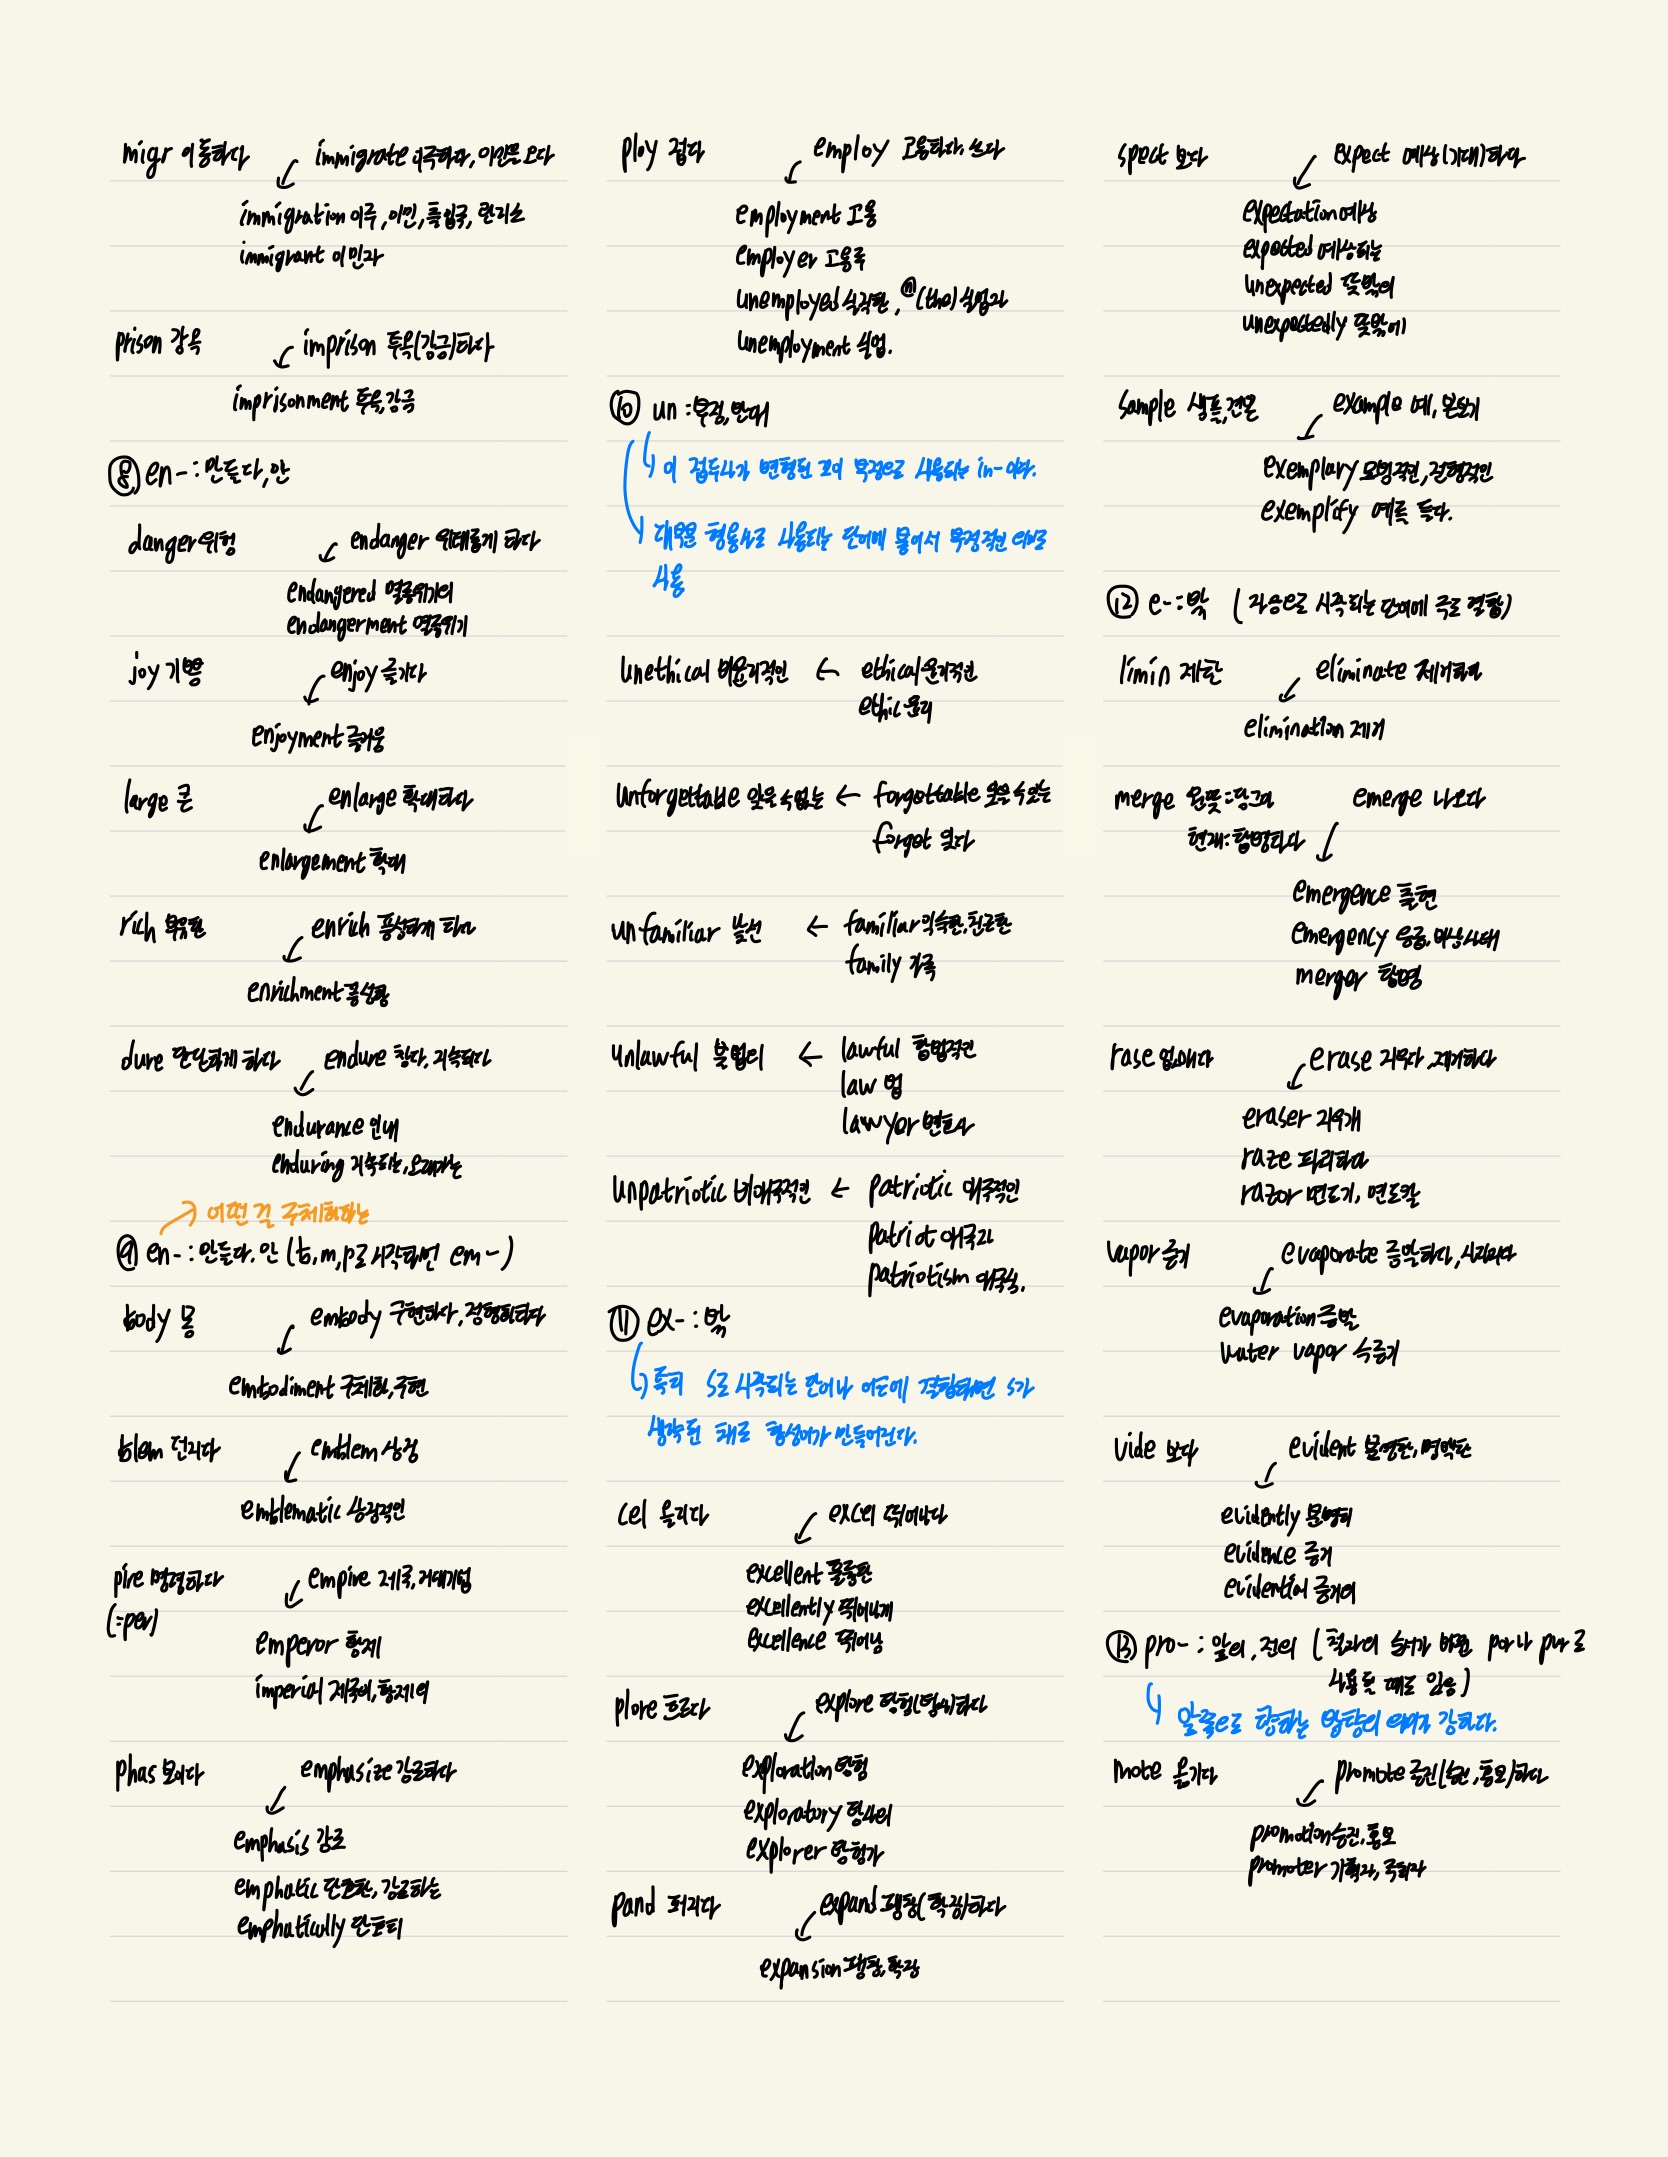 migr 이동하다 immigrate 이주하다, 이민오다
immigration 이주, 이민, 출입국, 관리소
immigrant 이민자
prison 감옥 imprison 투옥(감금)하다
imprisonment 투옥, 감금
⑧ en- : 만들다, 안
danger 위험 endanger 위태롭게 하다
endangered 멸종위기의
endangerment 멸종위기
joy 기쁨 enjoy 즐기다
enjoyment 즐거움
large 큰 enlarge 확대하다
enlargement 확대
rich 부유한 enrich 풍성하게 하다
enrichment 풍성함
dure 단단하게 하다 endure 참다, 지속되다
endurance 인내
enduring 지속되는, 오래가는
어떤 걸 구체화하는
⑨ en- : 만들다. 안 (b, m, p로 시작하면 em-)
body 몸 embody 구현하다, 정형화하다
embodiment 구체화, 구현
blem 던지다 emblem 상징
emblematic 상징적인
pire 명령하다 empire 제국, 거대기업
(=per)
emperor 황제
imperial 제국의, 황제의
phas 보이다 emphasize 강조하다
emphasis 강조
emphatic 단호한, 강조하는
emphatically 단호히
ploy 접다 employ 고용하다, 쓰다
employment 고용
employer 고용주
unemployed 실직한, ⓝ(the) 실업자
unemployment 실업.
⑩ un : 부정, 반대
이 접두사가 변형된 것이 부정으로 사용되는 in-이다.
대부분 형용사로 사용되는 단어에 붙어서 부정적인 의미로
사용
unethical 비윤리적인 ← ethical 윤리적인
ethic 윤리
unforgettable 잊을 수 없는 ← forgettable 잊을 수 있는
forget 잊다
unfamiliar 낯선 ← familiar 익숙한, 친근한
family 가족
unlawful 불법의 ← lawful 합법적인
law 법
lawyer 변호사
unpatriotic 비애국적인 ← patriotic 애국적인
patriot 애국자
patriotism 애국심.
⑪ ex- : 밖
특히 s로 시작되는 단어나 어근에 결합되면 s가
생략된 채로 합성어가 만들어진다.
cel 올리다 excel 뛰어나다
excellent 훌륭한
excellently 뛰어나게
excellence 뛰어남
plore 흐르다 explore 탐험(탐사)하다
exploration 탐험
exploratory 탐사의
explorer 탐험가
pand 퍼지다 expand 팽창(확장)하다
expansion 팽창, 확장
spect 보다 expect 예상(기대)하다
expectation 예상
expected 예상되는
unexpected 뜻밖의
unexpectedly 뜻밖에
sample 샘플, 견본 example 예, 본보기
exemplary 모범적인, 전형적인
exemplify 예를 들다.
⑫ e- : 밖 (자음으로 시작되는 단어에 주로 결합)
limin 제한 eliminate 제거하다
elimination 제거
merge 원뜻:담그다 emerge 나오다
현재:합병하다
emergence 출현
emergency 응급, 비상사태
merger 합병
rase 없애다 erase 지우다, 제거하다
eraser 지우개
raze 파괴하다
razor 면도기, 면도칼
vapor 증기 evaporate 증발하다, 사라지다
evaporation 증발
water vapor 수증기
vide 보다 evident 분명한, 명백한
evidently 분명히
evidence 증거
evidential 증거의
⑬ pro- : 앞의, 전의 (철자의 순서가 바뀐 por나 pur로
사용될 때도 있음)
앞쪽으로 향하는 방향의 의미가 강하다.
mote 옮기다 promote 증진(승진, 홍보)하다
promotion 승진, 홍보
promoter 기획자, 주최자